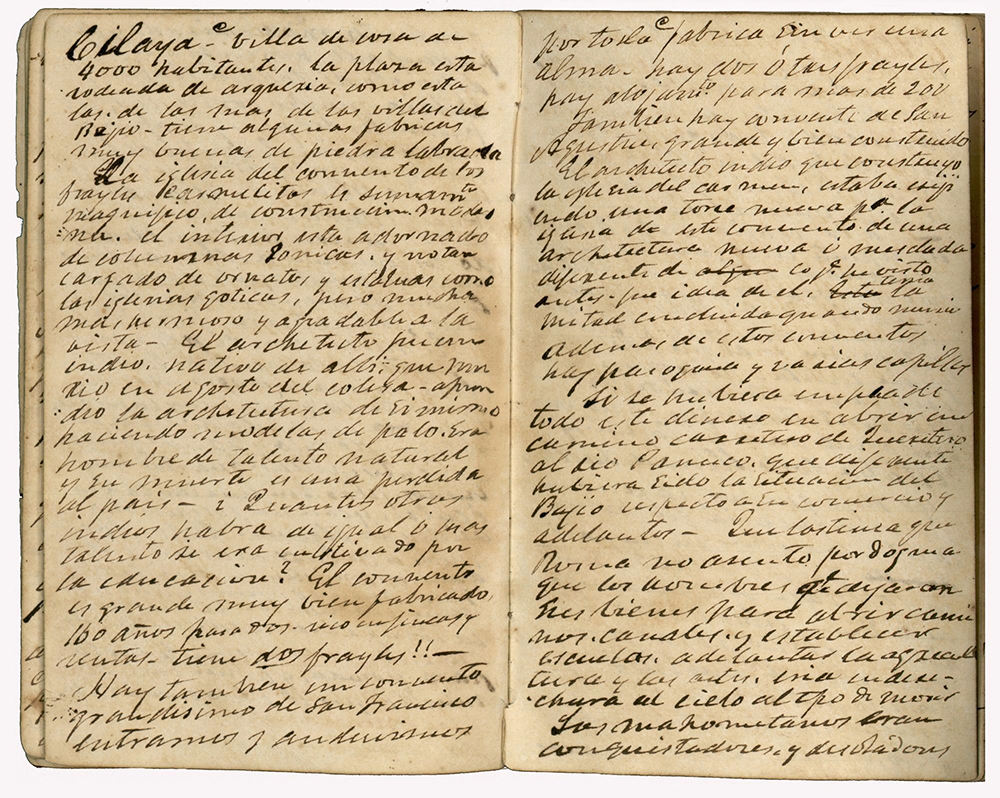 Cilaya - villa de cosa de
4000 habitantes. la plaza esta
rodeada de arqueria, como esta
las de las mas de las villas del
Bajio - tiene algunas fabricas
muy buenas de piedra labrada
La iglesia del convento de los
frayles Carmelitos es sumamte
magnifico, de construccion moder
na. el interior esta adornado
de columnas Ionicas, y no tan
cargado de ornatos y estatuas como
las iglesias goticas, pero mucha
mas hermoso y agradable a la
vista - El architecto fue un
indio, nativo de alli, que mu
rio en agosto del colera - apren
dio la architectura de si mismo
haciendo modelos de palo. Era
hombre de talento natural
y su muerte es una perdida
al pais - ¿ Quantos otros
indios habra de igual ó mas
talento se era cultivado por
la educacion? El convento
es grande muy bien fabricado,
160 años pasados - rico en fincas y
rentas - tiene dos frayles!! -
Hay tambien un convento
grandisimo de San Francisco
entramos y anduvimos
por toda la fabrica sin ver una
alma - hay dos ó tres frayles,
hay alojamto para mas de 200
Tambien hay convento de San
Agustin, grande y bien construido
El architecto indio que construyo
la iglesia del carmen, estaba erigi
endo una torre nueva pa. la
iglesia de este convento de una
architectura nueva ó mesclada
diferente de algun co q. he visto
antes - fue idea de el, Esta tenia la
mitad concluida quando murio
Ademas de estos conventos
hay paroquia y varias capillas
Si se hubiera empleado
todo este dinero en abrir un
camino carretero de Queretaro
al rio Panuco, que diferente
hubiera sido la situacion del
Bajio respecto a su comercio y
adelantos - Que lastima que
Roma no asento por dogma
que los hombres dejaran
sus bienes para abrir cami
nos, canales, y establecer
escuelas, adelantar la agricul
tura y las artes, una
al cielo al tpo de morir
Los mahometanos eran
conquistadores, y desoladores